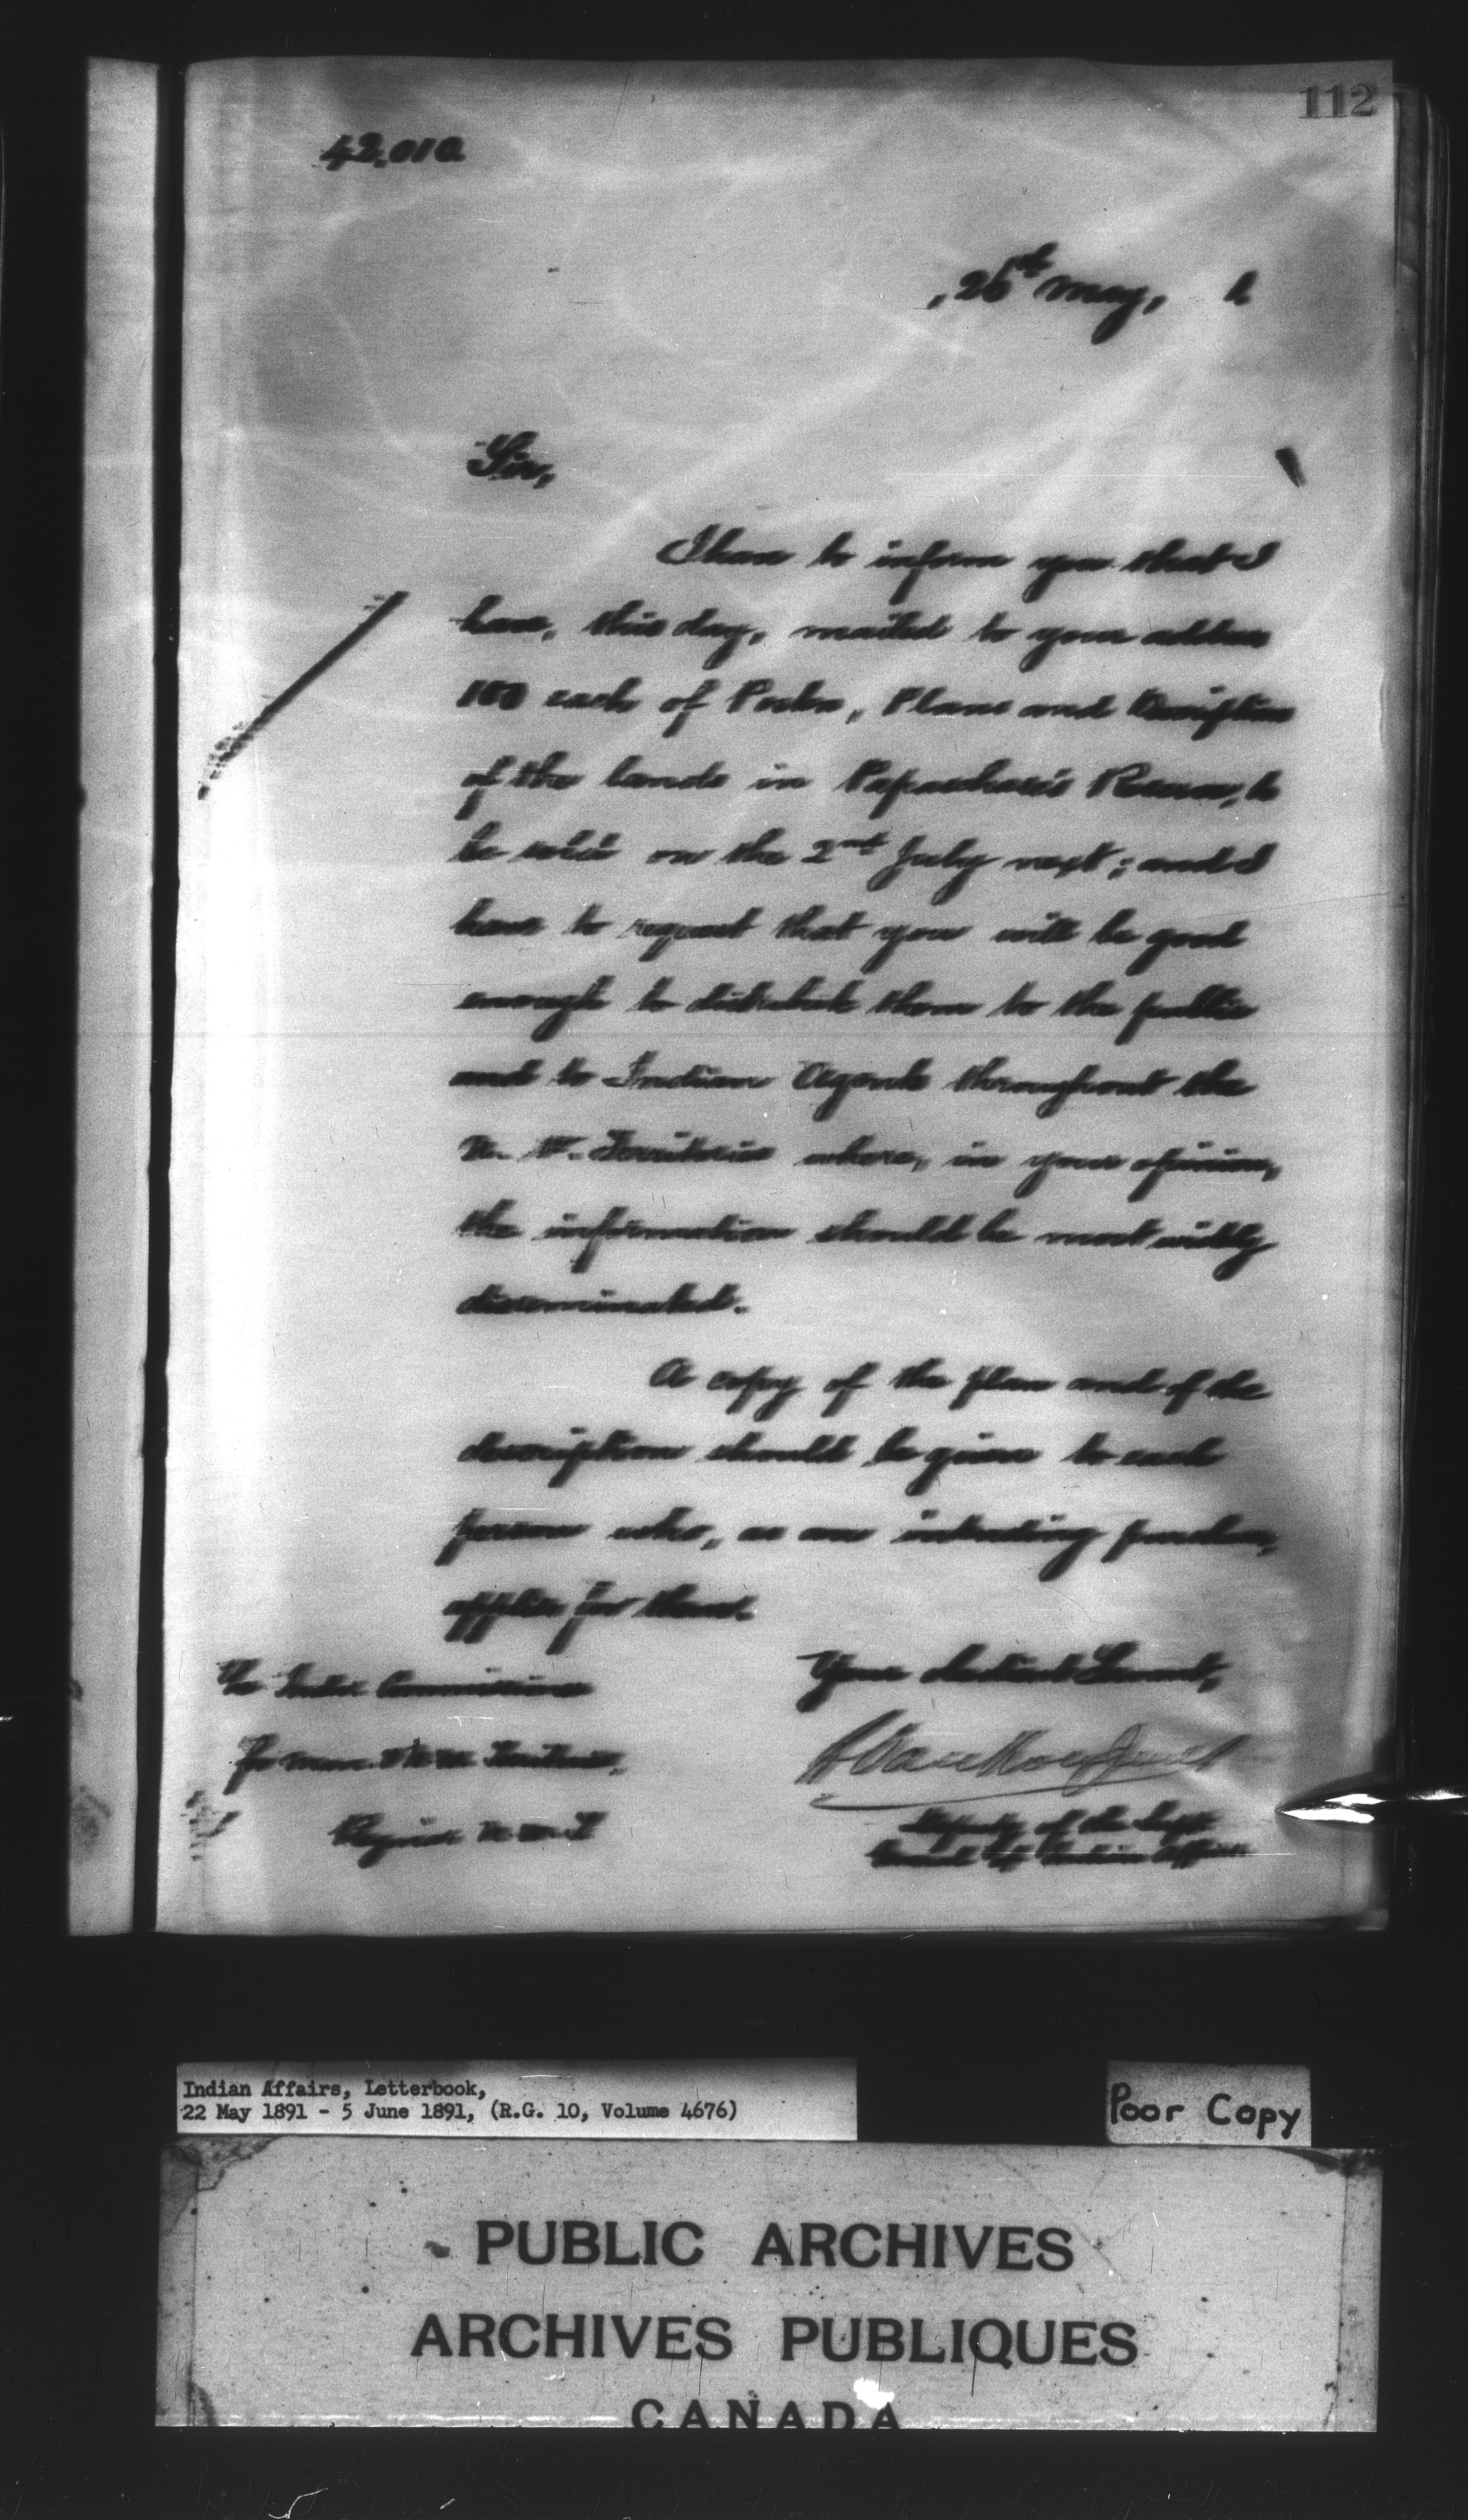 112
42,010
26th May, 1
Sir,
I have to inform you that I
have, this day, mailed to your address
100 each of Posters, Plans and Description
of the lands in Papaschase's Reserve, to
be sold on the 2nd July next; and I
have to request that you will be good
enough to distribute them to the public
and to Indian Agents throughout the
N. W. Territories where, in your opinion,
the information should be most widely
disseminated.
A copy of the plan and of the
description should be given to each
person who, as an intending purchaser,
applies for them.
Your obedient Servant,
The Indian Commissioner
L Vankoughnet
for Man. & N.W. Territories,
Deputy of the Supt.
General of Indian Affairs
Regina N.W.T
Indian Affairs, Letterbook,
22 May 1891 - 5 June 1891, (R.G. 10, Volume 4676)
Poor Copy
PUBLIC ARCHIVES
ARCHIVES PUBLIQUES
CANADA